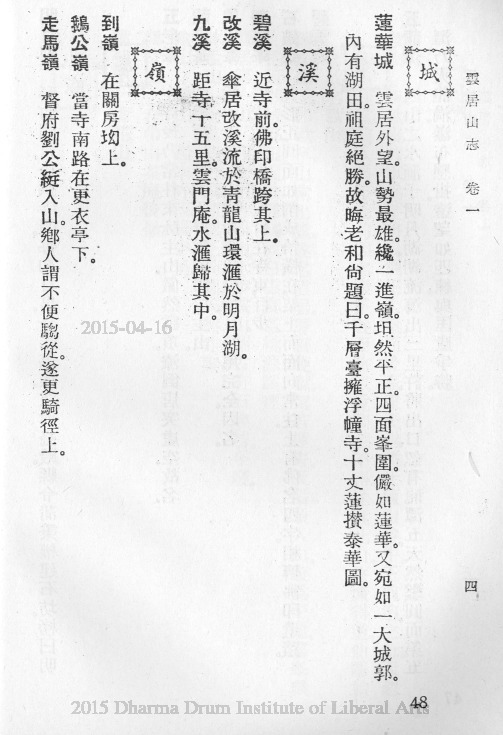 雲居山志 卷一 四
城
蓮華城 雲居外望。山勢最雄。纔一進嶺。坦然平正。四面峯圍。儼如蓮華。又宛如一大城郭。
內有湖田。祖庭絕勝。故晦老和尙題曰。千層臺擁浮幢寺。十丈蓮攅泰華圖。
溪
碧溪 近寺前。佛印橋跨其上。
改溪 傘居改溪流於靑龍山。環滙於明月湖。
九溪 距寺十五里。雲門庵。水滙歸其中。
嶺
到嶺 在關房坳上。
鵝公嶺 當寺南路在更衣亭下。
走馬嶺 督府劉公綎入山。鄕人謂不便騶從。遂更騎徑上。
48
2015-04-16
2015 Dharma Drum Institute of Liberal Arts